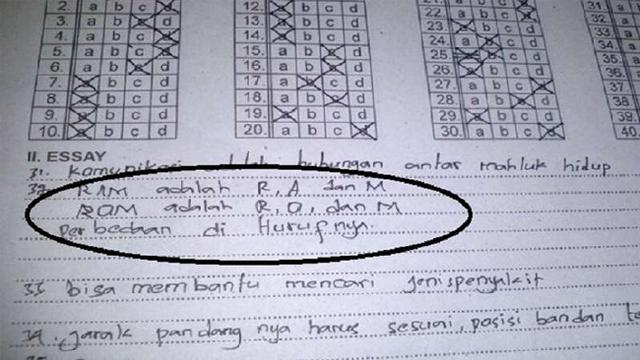 2. a b c d
3. a b c d
4. a b c d
5. a b c d
6. a b c d
7. a b c d
8. a b c d
9. a b c d
10. a b c d
12. a b c d
13. a b c d
14. a b c d
15. a b c d
16. a b c d
17. a b c d
18. a b c d
19. a b c d
20. a b c d
22. a b c d
23. a b c d
24. a b c d
25. a b c d
26. a b c d
27. a b c d
28. a b c d
29. a b c d
30. a b c d
31.
32.
33.
34.
35.
36.
37
38
39
40
II. ESSAY
31. Komunikasi adalah hubungan antar mahluk hidup
32. RAM adalah R, A dan M
ROM adalah R, O, dan M
perbedaan di Hurupnya.
33 bisa membantu mencari jenispenyakit
34. jarak pandang nya harus sesuai, posisi bandan